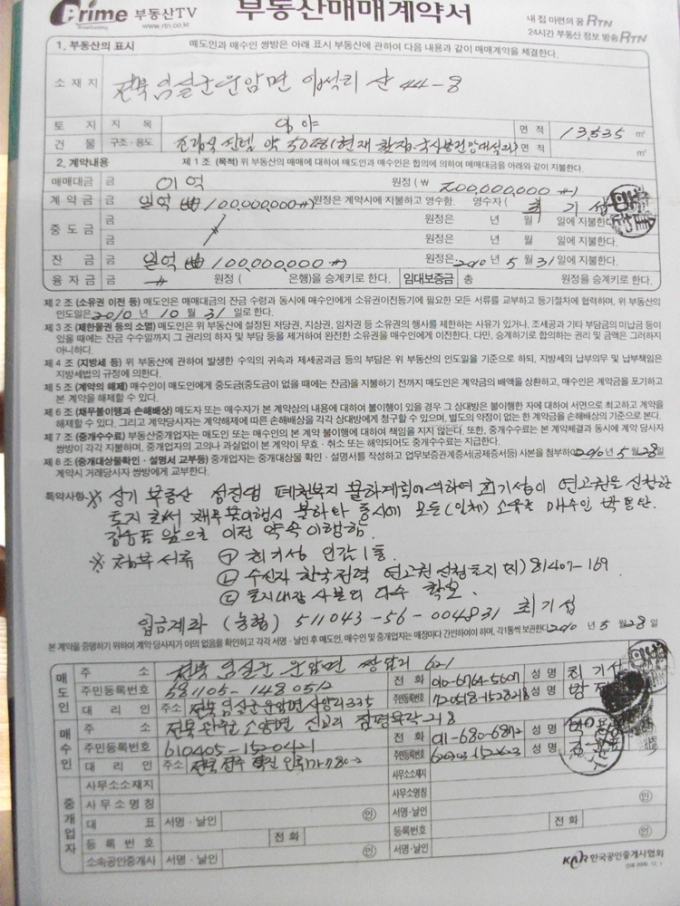 Prime 부동산TV
www.rtn.co.kr
부동산매매계약서
내 집 마련의 꿈 RTN
24시간 부동산 정보 방송 RTN
1. 부동산의 표시 매도인과 매수인 쌍방은 아래 표시 부동산에 관하여 다음 내용과 같이 매매계약을 체결한다.
소재지 전북 임실군 운암면 산 44-8
토지 지목 임야 면적 13,535 ㎡
건물 구조·용도 면적 ㎡
2. 계약내용 제 1 조 (목적) 위 부동산의 매매에 대하여 매도인과 매수인은 합의에 의하여 매매대금을 아래와 같이 지불한다.
매매대금 금 이억 원정 (₩ 200,000,000
계약금 금 일억 100,000,000 원정은 계약시에 지불하고 영수함. 영수자 ( 최기섭
중도금 금 원정은 년 월 일에 지불한다.
금 원정은 년 월 일에 지불한다.
잔금 금 일억 100,000,000 원정은 2010 년 5 월 31 일에 지불한다.
융자금 금 원정 ( 은행)을 승계키로 한다. 임대보증금 총 원정을 승계키로 한다.
제 2 조 (소유권 이전 등) 매도인은 매매대금의 잔금 수령과 동시에 매수인에게 소유권이전등기에 필요한 모든 서류를 교부하고 등기절차에 협력하며, 위 부동산의
인도일은 2010 년 10 월 31 일로 한다.
제 3 조 (제한물권 등의 소멸) 매도인은 위 부동산에 설정된 저당권, 지상권, 임차권 등 소유권의 행사를 제한하는 사유가 있거나, 조세공과 기타 부담금의 미납금 등이
있을 때에는 잔금 수수일까지 그 권리의 하자 및 부담 등을 제거하여 완전한 소유권을 매수인에게 이전한다. 다만, 승계하기로 합의하는 권리 및 금액은 그러하지
아니하다.
제 4 조 (지방세 등) 위 부동산에 관하여 발생한 수익의 귀속과 제세공과금 등의 부담은 위 부동산의 인도일을 기준으로 하되, 지방세의 납부의무 및 납부책임은
지방세법의 규정에 의한다.
제 5 조 (계약의 해제) 매수인이 매도인에게 중도금(중도금이 없을 때에는 잔금)을 지불하기 전까지 매도인은 계약금의 배액을 상환하고, 매수인은 계약금을 포기하고
본 계약을 해제할 수 있다.
제 6 조 (채무불이행과 손해배상) 매도자 또는 매수자가 본 계약상의 내용에 대하여 불이행이 있을 경우 그 상대방은 불이행한 자에 대하여 서면으로 최고하고 계약을
해제할 수 있다. 그리고 계약당사자는 계약해제에 따른 손해배상을 각각 상대방에게 청구할 수 있으며, 별도의 약정이 없는 한 계약금을 손해배상의 기준으로 본다.
제 7 조 (중개수수료) 부동산중개업자는 매도인 또는 매수인의 본 계약 불이행에 대하여 책임을 지지 않는다. 또한, 중개수수료는 본 계약체결과 동시에 계약 당사자
쌍방이 각각 지불하며, 중개업자의 고의나 과실없이 본 계약이 무효·취소 또는 해약되어도 중개수수료는 지급한다.
제 8 조 (중개대상물확인·설명서 교부등) 중개업자는 중개대상물 확인·설명서를 작성하고 업무보증관계증서(공제증서등) 사본을 첨부하여 2010 년 5 월 28 일
계약시 거래당사자 쌍방에게 교부한다.
특약사항 ※ 상기 부동산 섬진댐 불하계획에 의하여 최기섭이 연고권을 신청한
토지로서
이전 약속 이행함.
※ 첨부서류 ㉠ 최기섭 인감 1통.
㉡ 수신자 한국전력 연고권 신청토지 81407-169
㉢ 토지대장 사본
입금계좌 (농협) 511043-56-004831 최기섭
본 계약을 증명하기 위하여 계약 당사자가 이의 없음을 확인하고 각각 서명·날인 후 매도인, 매수인 및 중개업자는 매장마다 간인하여야 하며, 각1통씩 보관한다. 2010 년 5 월 28 일
매도인 주소 전북 임실군 운암면 쌍암리 621
주민등록번호 681105-1480512 전화 010-6764-5607 성명 최기섭
대리인 주소 전북 임실군 운암면 335 주민등록번호 성명
매수인 주소 전북 완주군 소양면
주민등록번호 610405-1520421 전화 011-680-6872 성명
대리인 주소 전북 전주 주민등록번호 성명
중개업자 사무소소재지 사무소소재지
사무소명칭 사무소명칭
대표 서명·날인 ㊞ 전화 서명·날인 ㊞
등록번호 전화 등록번호 전화
소속공인중개사 서명·날인 ㊞ 서명·날인 ㊞
KAR 한국공인중개사협회